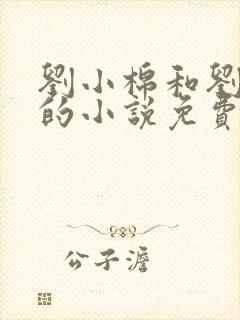 劉小棉和劉
的小說免費
公子澹